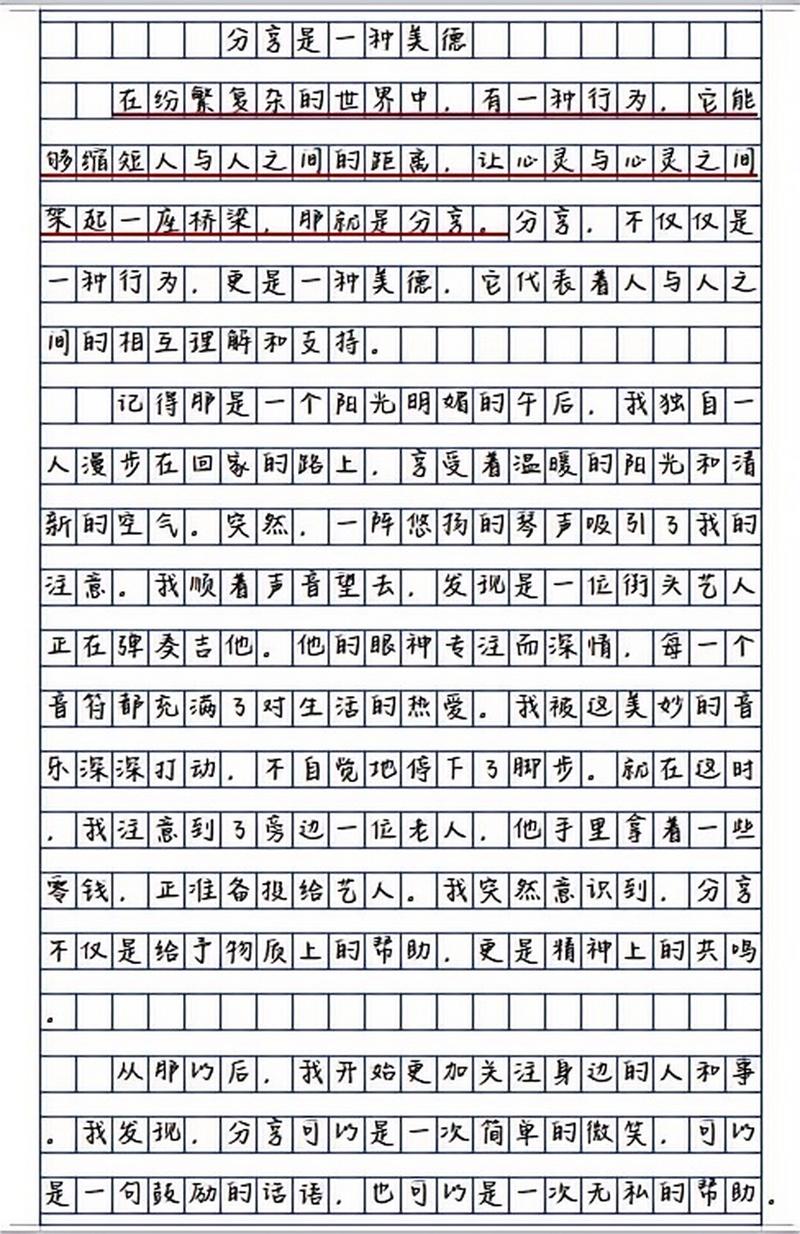 分享是一种美德
在纷繁复杂的世界中，有一种行为，它能
够缩短人与人之间的距离，让心灵与心灵之间
架起一座桥梁，那就是分享。分享，不仅仅是
一种行为，更是一种美德，它代表着人与人之
间的相互理解和支持。
记得那是一个阳光明媚的午后，我独自一
人漫步在回家的路上，享受着温暖的阳光和清
新的空气。突然，一阵悠扬的琴声吸引了我的
注意。我顺着声音望去，发现是一位街头艺人
正在弹奏吉他。他的眼神专注而深情，每一个
音符都充满了对生活的热爱。我被这美妙的音
乐深深打动，不自觉地停下了脚步。就在这时
，我注意到了旁边一位老人，他手里拿着一些
零钱，正准备投给艺人。我突然意识到，分享
不仅是给予物质上的帮助，更是精神上的共鸣
。
从那以后，我开始更加关注身边的人和事
。我发现，分享可以是一次简单的微笑，可以
是一句鼓励的话语，也可以是一次无私的帮助。